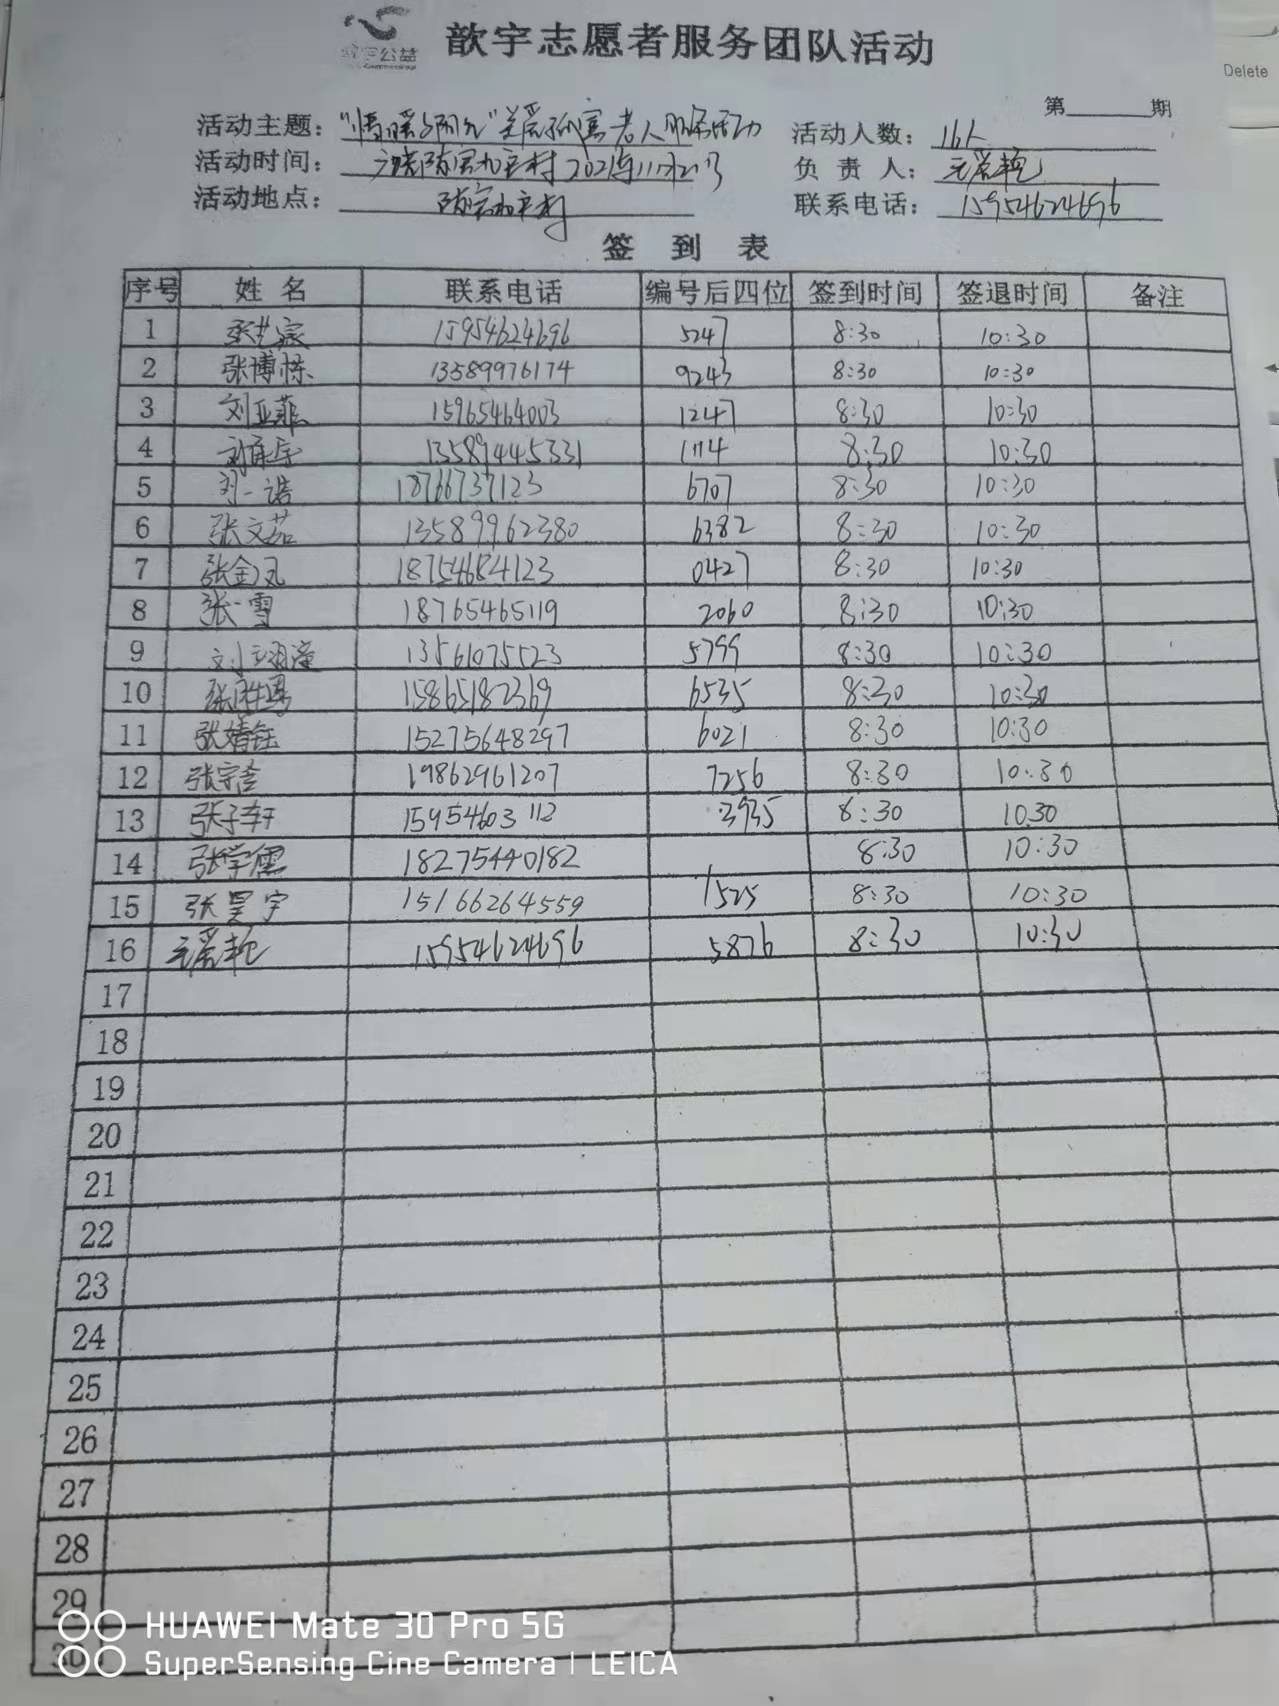 歆宇公益
歆宇志愿者服务团队活动
Delete
第 期
活动主题： 老人服务活动 活动人数：16人
活动时间： 2021年11月21号 负责人：
活动地点： 联系电话：15954624696
签到表
序号 姓名 联系电话 编号后四位 签到时间 签退时间 备注
1 张艺宸 15954624696 5247 8:30 10:30
2 张博栋 13589976174 9243 8:30 10:30
3 刘亚菲 15965464003 1247 8:30 10:30
4 13589445331 1114 8:30 10:30
5 刘一诺 18766737123 6707 8:30 10:30
6 张文茹 13589962380 6382 8:30 10:30
7 张金凤 18754684123 0427 8:30 10:30
8 张雪 18765465119 2060 8:30 10:30
9 13561075523 5799 8:30 10:30
10 15865182369 6535 8:30 10:30
11 张婧钰 15275648297 6021 8:30 10:30
12 19862961207 7256 8:30 10:30
13 张子轩 15954603112 3935 8:30 10.30
14 张学儒 18275440182 8:30 10:30
15 张昊宇 15166264559 1525 8:30 10:30
16 15954624696 5876 8:30 10:30
17
18
19
20
21
22
23
24
25
26
27
28
29
30
HUAWEI Mate 30 Pro 5G
SuperSensing Cine Camera | LEICA